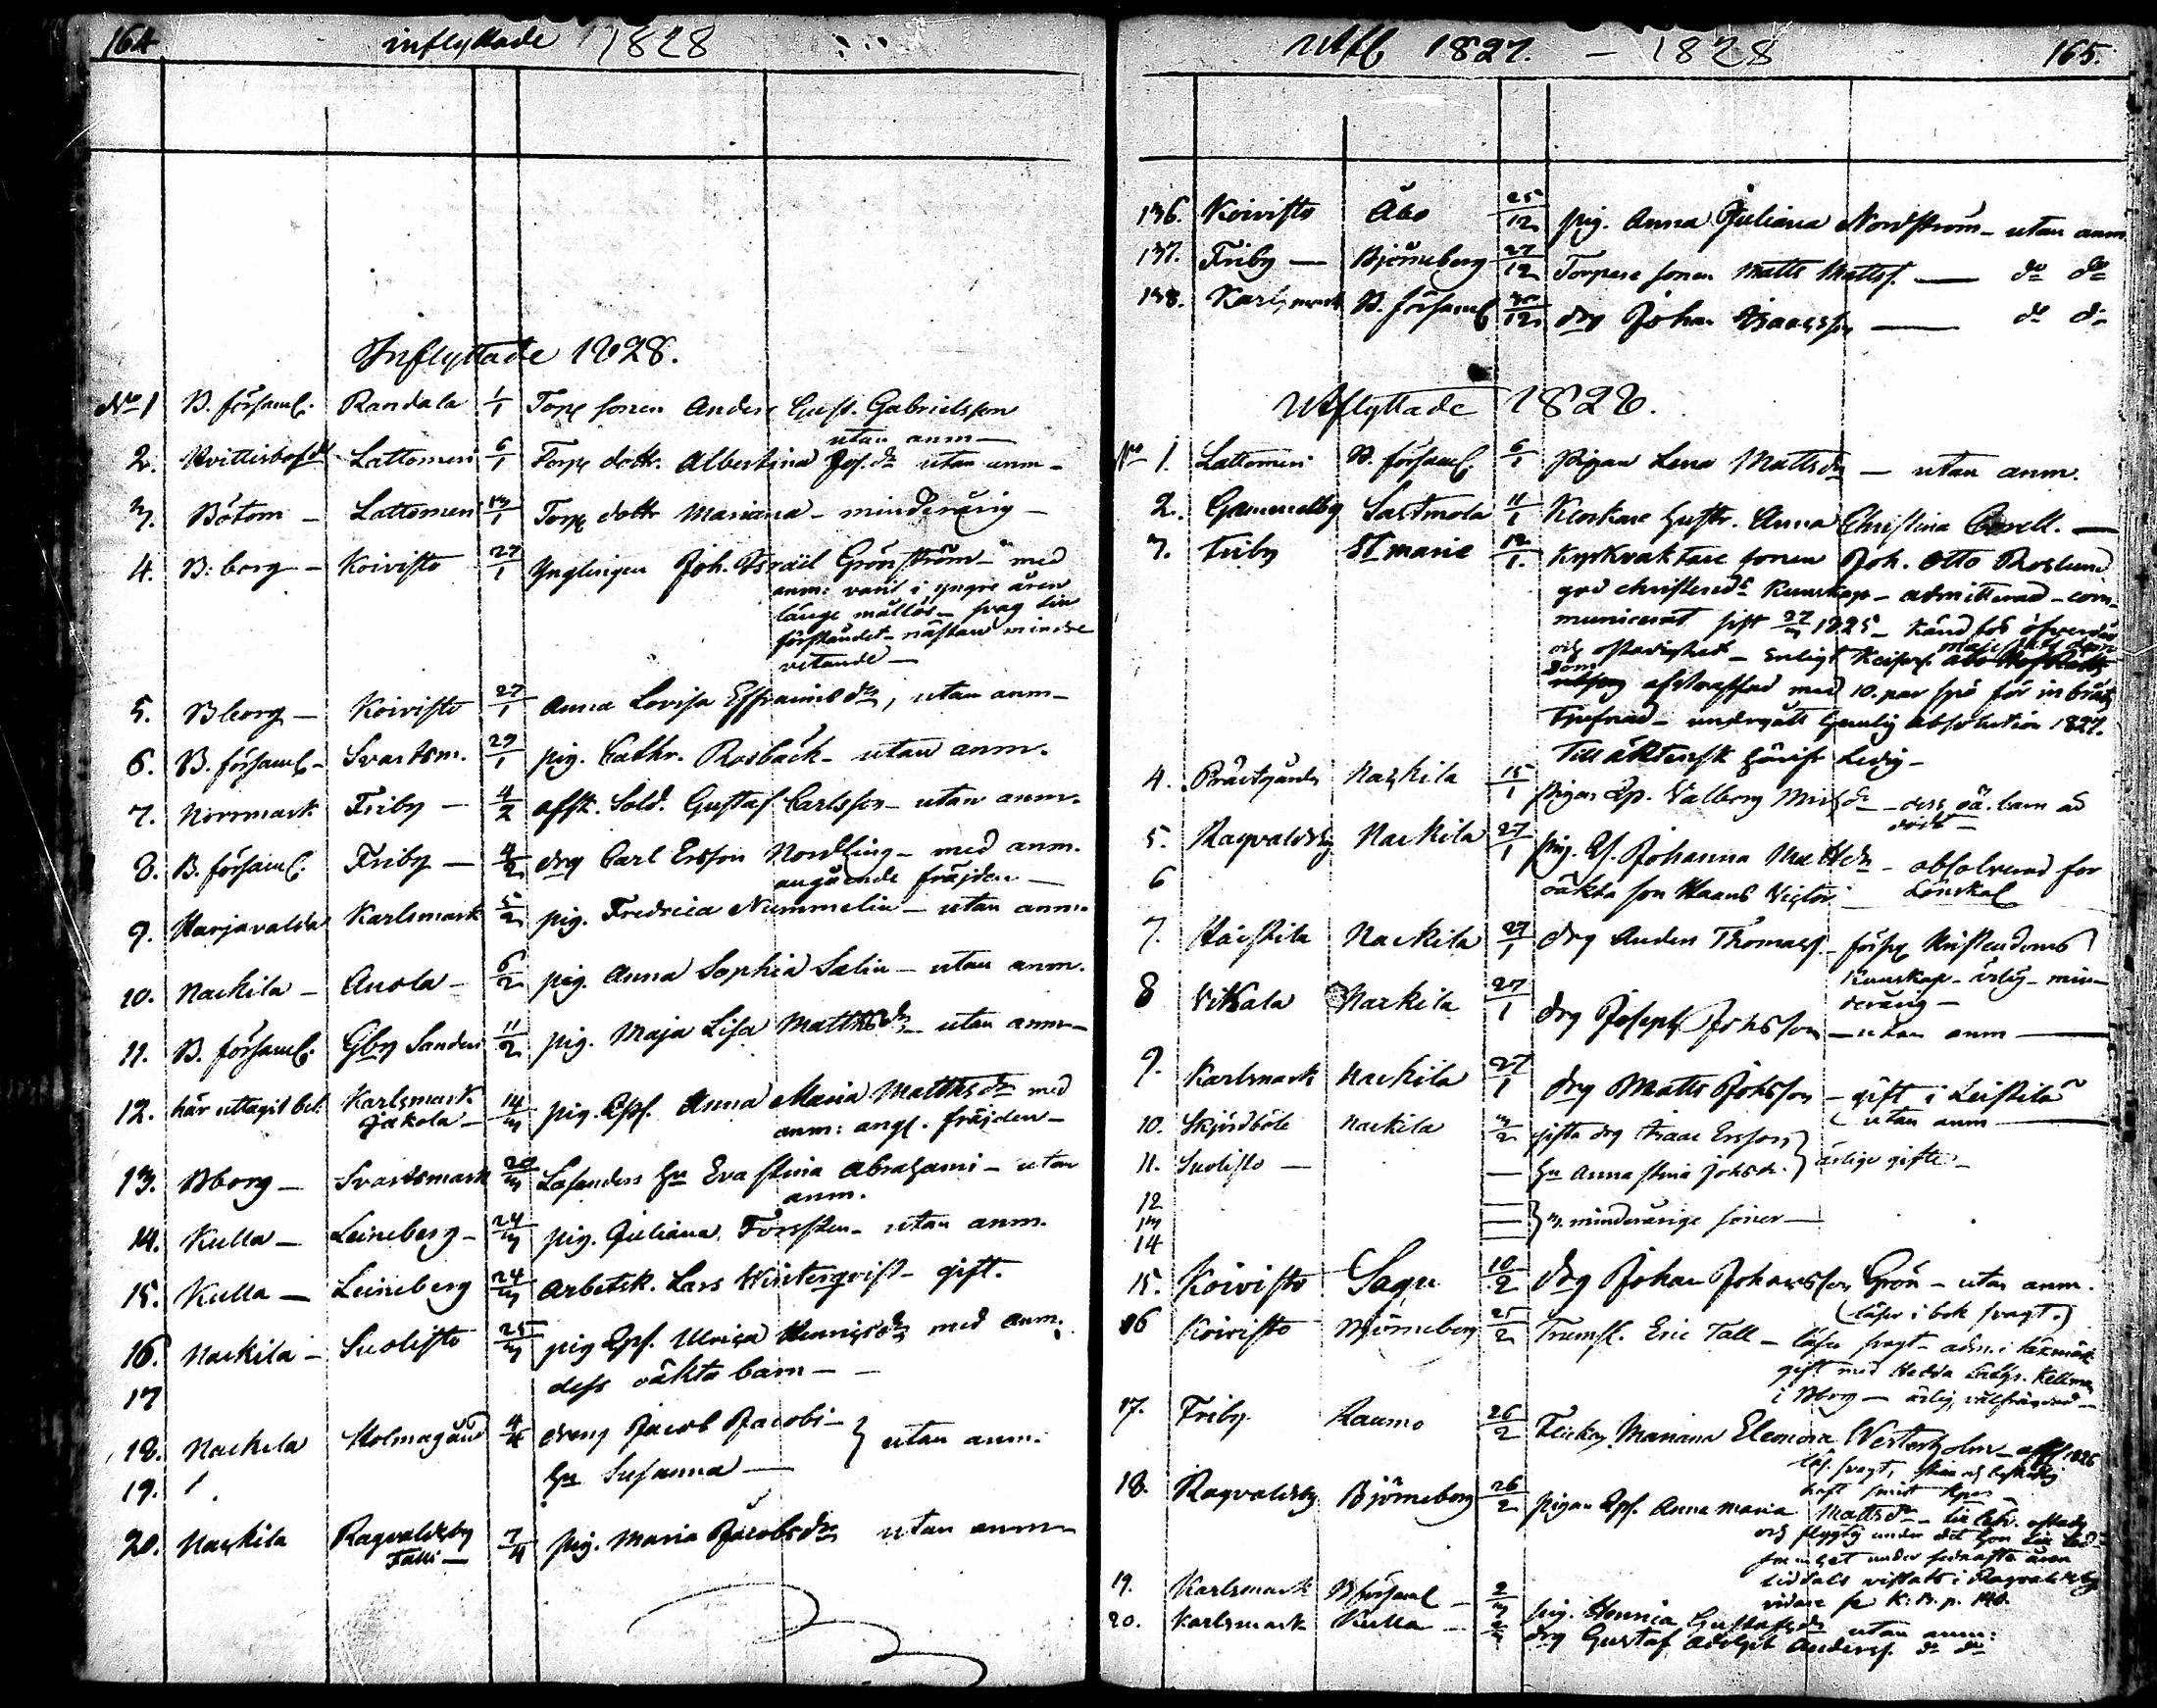 164 inflyttade 1828
Inflyttade 1828.
No 1 B. församl. Randala 1/1 Torp sonen Anders Gust. Gabrielsson
utan anm—
2. Lattomeri 6/1 Torp dottr. Albertina Jos.dr utan anm—
3. Bötom — Lattomeri 13/1 Torp dottr Mariana — minderårig —
4. B:borg — Koivisto 27/1 Ynglingen Joh. Israël Grönström — med
anm: varit i yngre åren
länge mållös — svag till
förståndet — nästan mindre
vetande —
5. Bborg — Koivisto 27/1 Anna Lovisa Effraimsdr, utan anm—
6. B. församl — Svartsm. 29/1 pig. Cathr. Rosbäck — utan anm.
7. Norrmark Friby — 4/2 afsk. Sold. Gustaf Carlsson — utan anm.
8. B. församl. Friby — 4/2 drg Carl Ersson Nordling — med anm.
angående fräjden —
9. Harjavalda Karlsmark 5/2 pig. Fredrica Nummelin — utan anm.
10. Nackila — Anola — 6/2 pig. Anna Sophia Salin — utan anm.
11. B. församl. Gby Sanden 11/2 pig. Maja Lisa Mattsdr — utan anm—
12. här uttagit bet. Karlsmark 14/3 pig. Qpf. Anna Maria Matthsdr med
Jakola — anm: ang. fräjden —
13. Bborg — Svartsmark 20/3 Hu Eva Stina Abrahami — utan
anm.
14. Kulla — Leineberg — 24/3 pig. Juliana Forssten — utan anm.
15. Kulla — Leineberg 24/3 Arbetsk. Lars Winterqvist — gift.
16. Nackila — Suolisto 25/3 pig Qpf. Ulrica Henricsdr med anm.
17 dess oäkta barn —
18. Nackila Holmagård 4/4 dreng Jacob Jacobi — } utan anm.
19. Hu Susanna —
20. Nackila Ragvaldsby 7/4 pig. Maria Jacobsdr utan anm—
Talli —
Utfl 1827. — 1828 165.
136. Koivisto Åbo 25/12 pig. Anna Juliana Nordström — utan anm
137. Friby — Björneborg 27/12 Torpare sonen Matts Mattss. — do do
138. Karlsmark B. församl 30/12 drg Johan Isaacsson — do do
Utflyttade 1828.
No 1. Lattomeri B. församl. 6/1 Pigan Lena Mattsdr — utan anm.
2. Gammelby Sastmola 11/1 Klockare hustr. Anna Christina —
3. Friby St marie 12/1. Kyrkvaktare sonen Joh. Otto Roslund
god christends kunskap — admitterad — com—
municerat sist 27/3 1825 — känd för
och ostadighet — Enligt Keiserl. Majestäts dom
afstraffad med 10. par spö för inbrotts
Tjufnad — undergått hemlig absolution 1827.
Till äktensk hönisr Ledig —
4. Prästgården Nackila 15/1 Pigan Qp. Valborg Michdr — dess oä. barn äd
dödt —
5. Ragvaldsby Nackila 27/1 pig. Qf. Johanna Mattsdr — absolverad for
6 oäkta son Klaas Victor Lönskal
7. Haistila Nackila 27/1 drg Anders Thomass. — förs. Kristendoms
kunskap — ärlig — min—
derårig —
8 Vitkala Nackila 27/1 drg Joseph Johsson — utan anm —
9. Karlsmark Nackila 27/1 drg Matts Johsson — gift i Leistilä
utan anm —
10. Skjördböle Nackila 3/2 gifta drg Isaac Ersson }
11. Suolisto — — Hu Anna Stina Johsdr. } ärlige gifte —
12
13 } 3. minderårige söner —
14
15. Koivisto Sagu 10/2 drg Johan Johansson Grön — utan anm.
(läser i bok svagt.)
16 Koivisto Björneborg 25/2 Trumsl. Eric Tall — läser svagt — adm. i
gift med Hedda
i Bborg — ärlig, välfräjdad —
17. Friby. Raumo 26/2 Mariana Eleonora Westerholm — 1826
läs. svagt,
18. Ragvaldsby Björneborg 26/2 pigan Qpf. Anna Maria Mattsdr —
och flygtig under det hon
under sednaste åren
vistats i Ragvaldsby
vidare se K:B. p. 140.
19. Karlsmark B församl — 2/3 pig. Henrica Gustafsdr utan anm:
20. Karlsmark Kulla — 2/3 drg Gustaf Adolph Anderss. do do